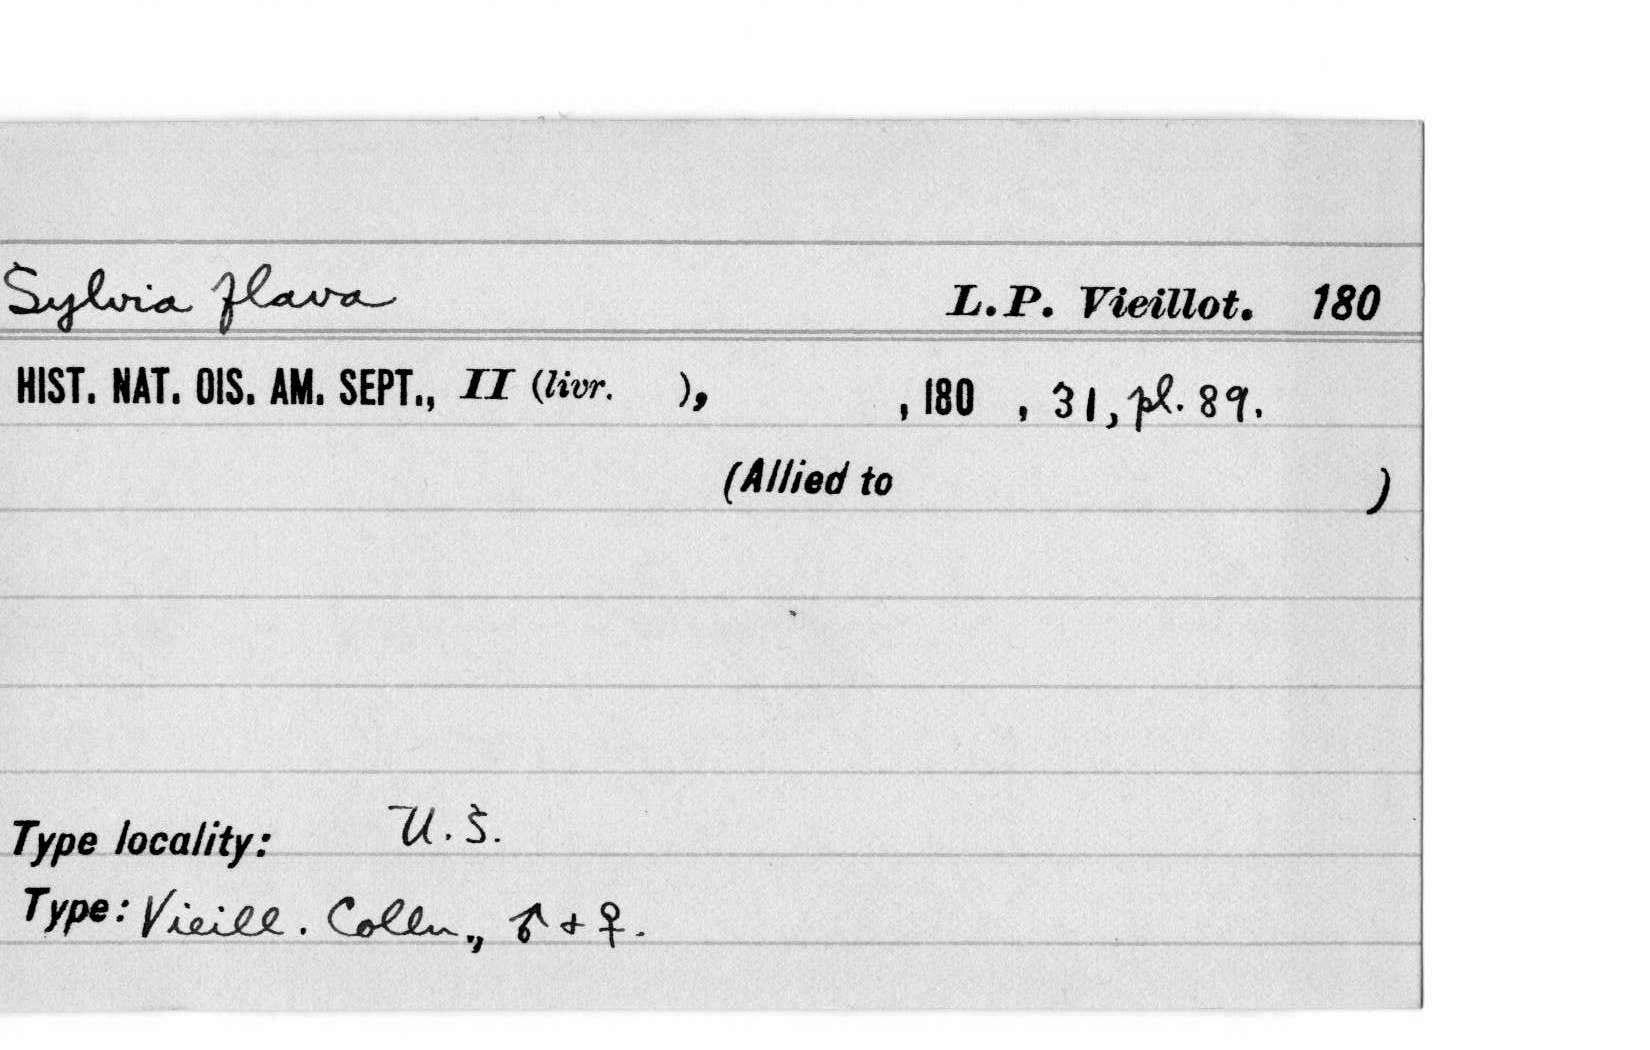 Sylvia flava L.P. Vieillot. 180
HIST. NAT. OIS. AM. SEPT., II (livr. ), , 180 , 31, pl. 89.
(Allied to )
Type locality: U.S.
Type: Vieill. Colln., ♂ + ♀.